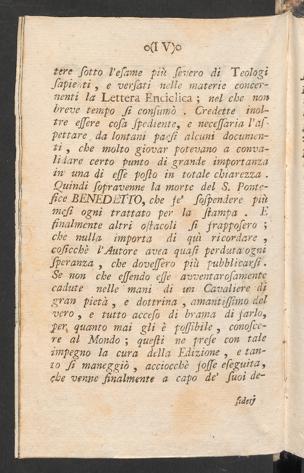 o(I V)o
tere sotto l'esame più severo di Teologi
sapienti, e versati nelle materie concer-
nenti la Lettera Enciclica; nel che non
breve tempo si consumò. Credette inol-
tre essere cosa spediente, e necessaria l'as-
pettare da lontani paesi alcuni documen-
ti, che molto giovar potevano a conva-
lidare certo punto di grande importanza
in una di esse posto in totale chiarezza.
Quindi sopravenne la morte del S. Ponte-
fice BENEDETTO, che fe' sospendere più
mesi ogni trattato per la stampa. E
finalmente altri ostacoli si frapposero;
che nulla importa di quì ricordare,
cosicchè l'Autore avea quasi perduta ogni
speranza, che dovessero più pubblicarsi.
Se non che essendo esse avventurosamente
cadute nelle mani di un Cavaliere di
gran pietà, e dottrina, amantissimo del
vero, e tutto acceso di brama di farlo,
per quanto mai gli è possibile, conosce-
re al Mondo; questi ne prese con tale
impegno la cura della Edizione, e tan-
to si maneggiò, acciocchè fosse eseguita,
che venne finalmente a capo de' suoi de-
siderj